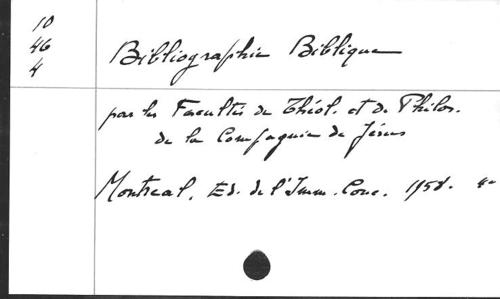 10
46
4
Bibliographie Biblique
par les Facultés de Théol. et de Philos.
de la Compagnie de Jésus
Montreal, Ed. de l'Imm. Conc. 1958. 4°